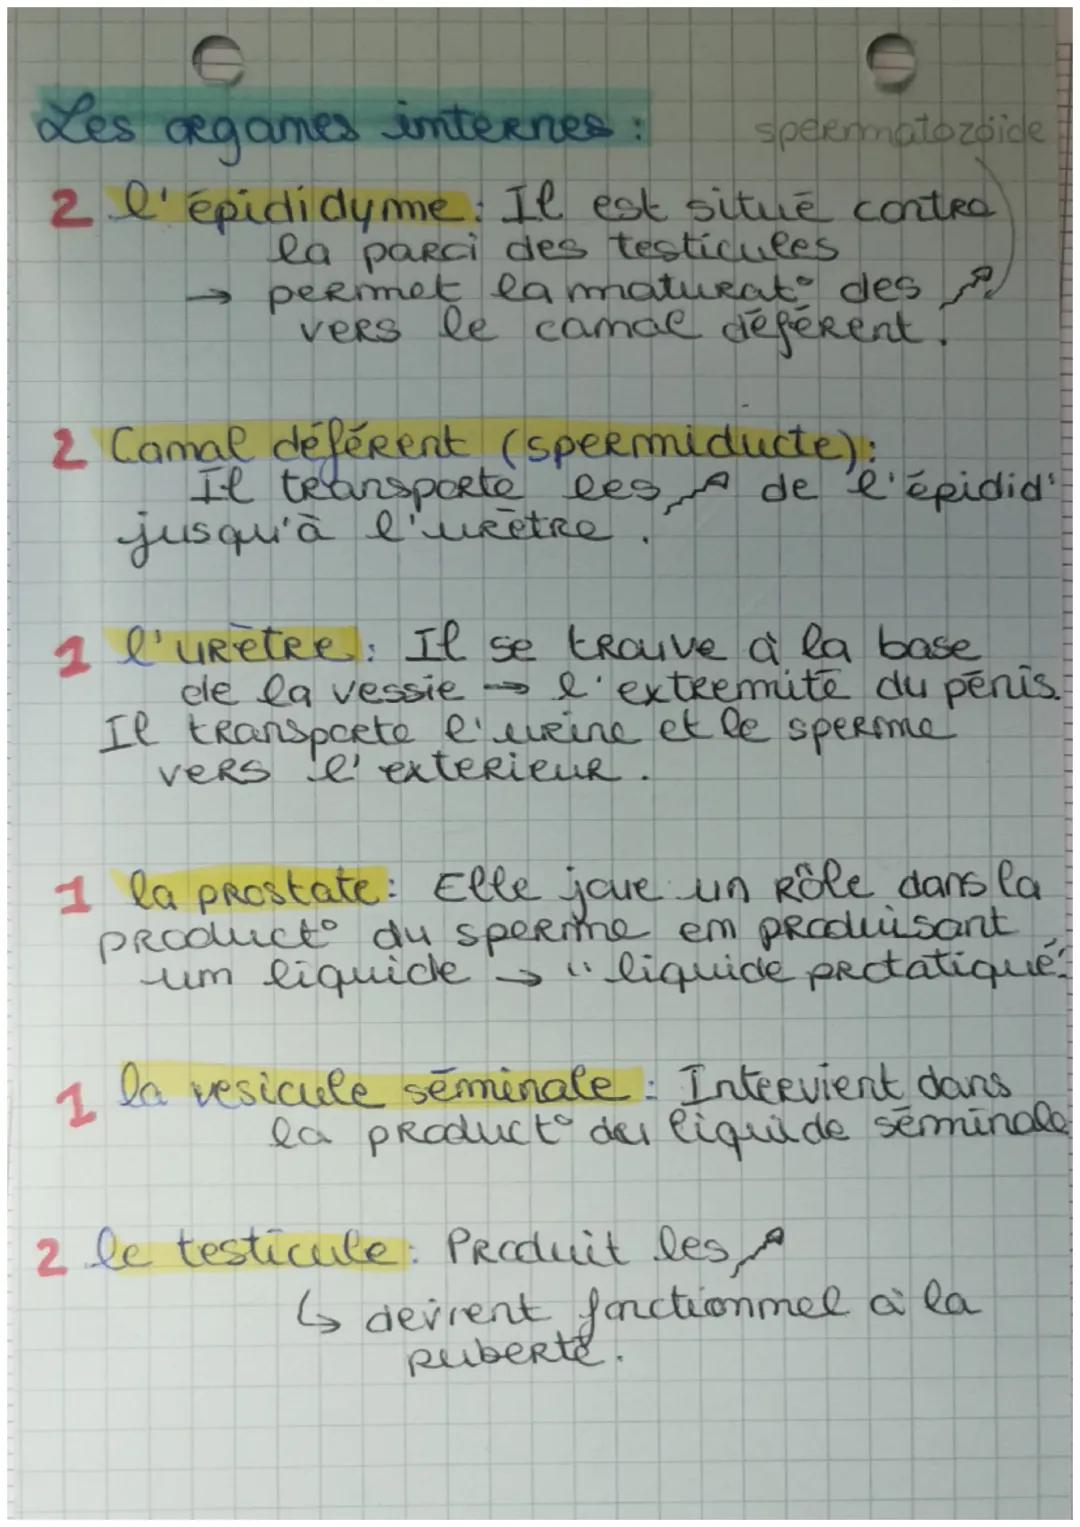 Les organes internes :
spermatozoïde
2 l'épididyme : Il est situé contre
la paroi des testicules
→ permet la maturat° des
vers le canal déférent.
2 Canal déférent (spermiducte) :
Il transporte les de l'épidid'
jusqu'à l'urètre.
1 l'urètre : Il se trouve à la base
de la vessie → l'extremité du pénis.
Il transporte l'urine et le sperme
vers l'exterieur.
1 la prostate : Elle joue un rôle dans la
product° du sperme en produisant
un liquide → " liquide protatique".
1 la vesicule séminale : Intervient dans
la product° du liquide séminale
2 le testicule : Produit les
↳ devient fonctionnel à la
puberté.